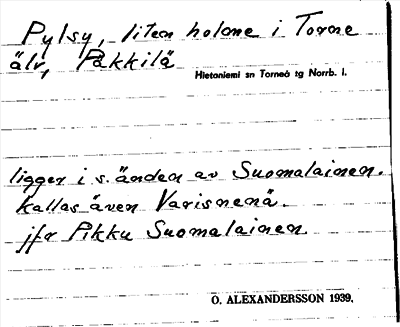 Pylsy, liten holme i Torne
älv, Päkkilä
Hietaniemi sn Torneå tg Norrb. l.
ligger i s. änden av Suomalainen.
kallas även Varisnenä.
jfr Pikku Suomalainen.
O. ALEXANDERSSON 1939.